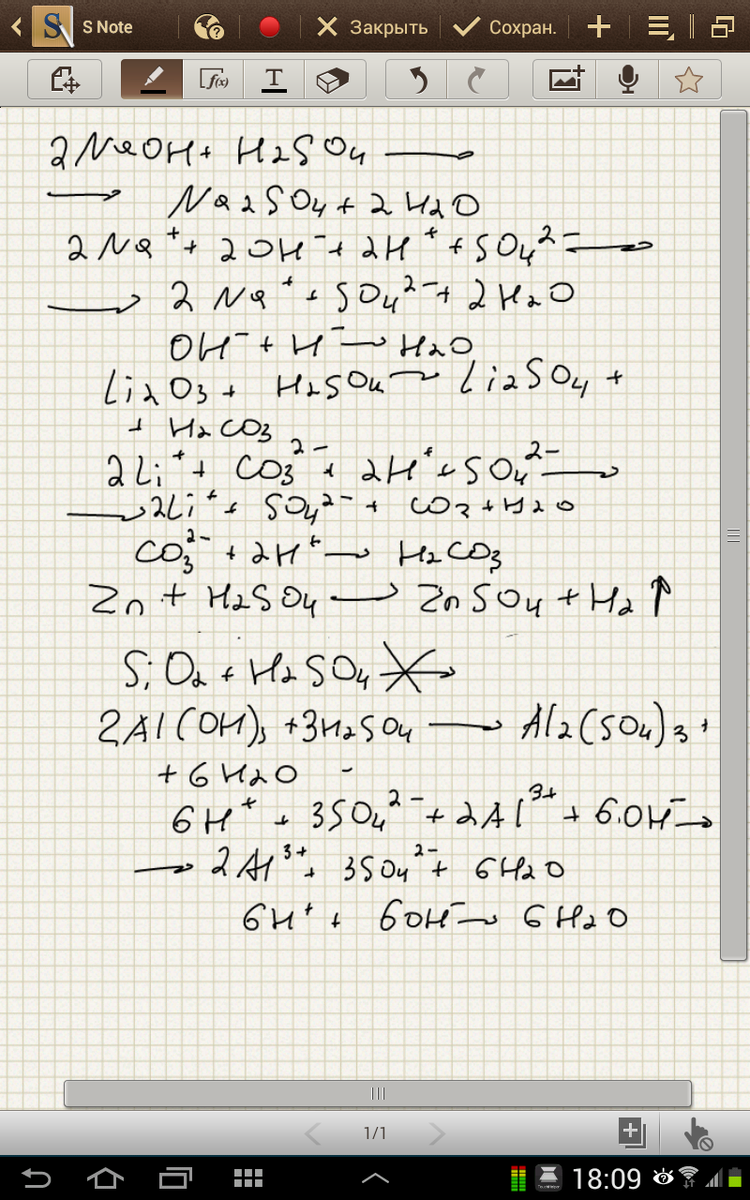 S Note
Закрыть
Сохран.
f(x)
T
2NaOH + H2SO4 ⟶
⟶ Na2SO4 + 2H2O
2Na⁺ + 2OH⁻ + 2H⁺ + SO4²⁻ ⟶
⟶ 2Na⁺ + SO4²⁻ + 2H2O
OH⁻ + H⁻ → H2O
Li2O3 + H2SO4 → Li2SO4 +
+ H2CO3
2Li⁺ + CO3²⁻ + 2H⁺ + SO4²⁻ ⟶
⟶ 2Li⁺ + SO4²⁻ + CO2 + H2O
CO3²⁻ + 2H⁺ → H2CO3
Zn + H2SO4 ⟶ ZnSO4 + H2↑
SiO2 + H2SO4 ↛
2Al(OH)3 + 3H2SO4 ⟶ Al2(SO4)3 +
+ 6H2O
6H⁺ + 3SO4²⁻ + 2Al³⁺ + 6OH⁻ →
→ 2Al³⁺ + 3SO4²⁻ + 6H2O
6H⁺ + 6OH⁻ → 6H2O
1/1
18:09